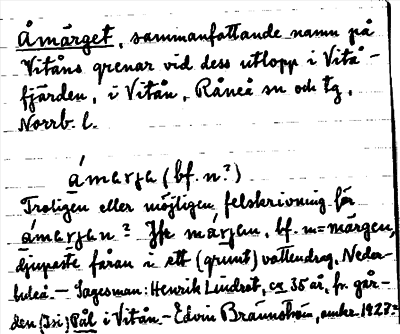 Åmärget, sammanfattande namn på
Vitåns grenar vid dess utlopp i Vitå-
fjärden, i Vitån, Råneå sn och tg,
Norrb. l.
ámarja (bf. n?)
Troligen eller möjligen felskrivning för
ámarjan? Jfr märjen, bf. m = märgen,
djupaste fåran i ett (grunt) vattendrag, Neder-
luleå. — Sagesman: Henrik Lindret, ca 35 år, fr. går-
den (Isi) Pål i Vitån. — Edvin Brännström, 1928.